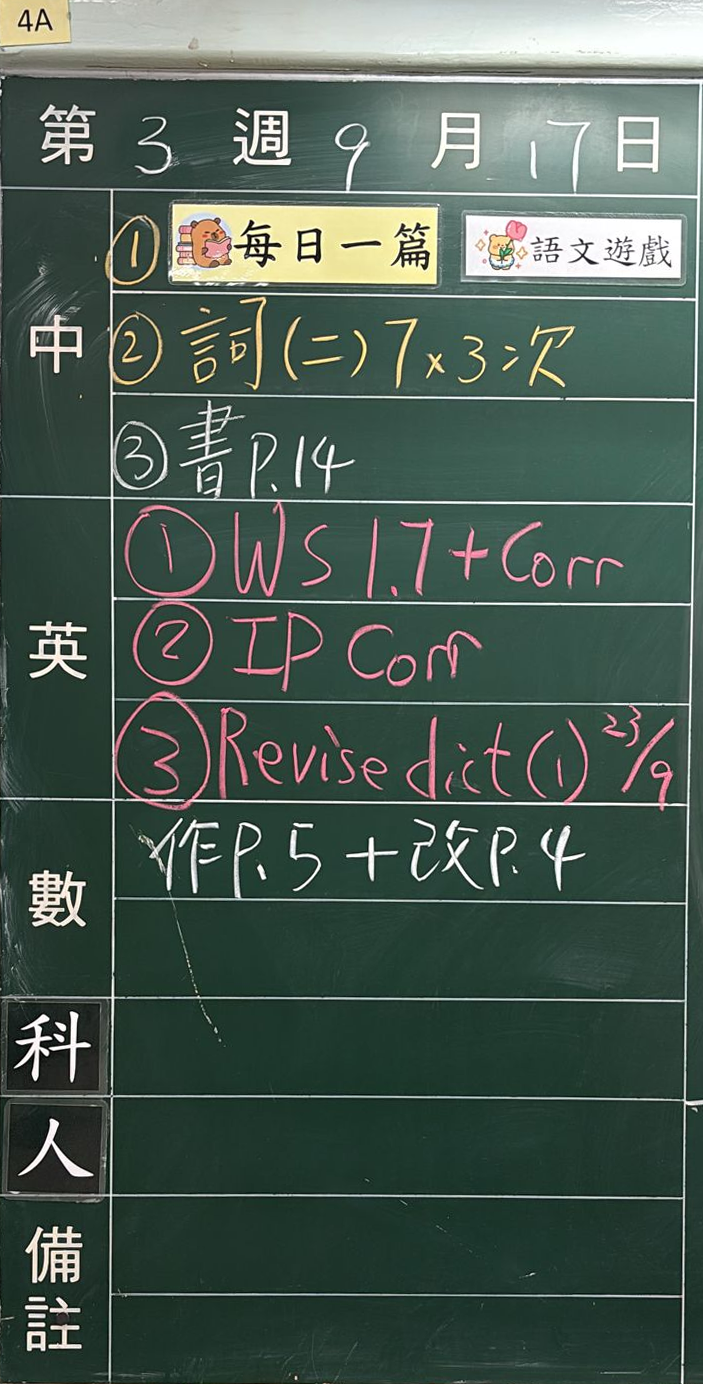 4A
第3週9月17日
中
① 每日一篇 語文遊戲
② 詞(二)7x3次
③ 書P.14
英
① WS 1.7+Corr
② IP Corr
③ Revise dict (1) 23/9
數
作P.5+改P.4
科
人
備註